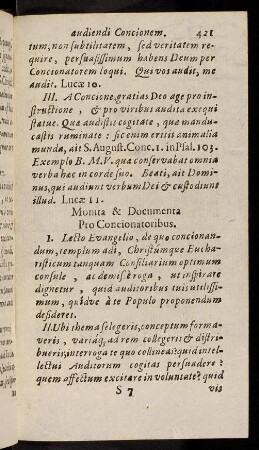 audiendi Concionem. 421
tum, non subtilitatem, sed veritatem re-
quire, persuasissimum habens Deum per
Concionatorem loqui. Qui vos audit, me
audit. Lucæ 10.
III. A Concione, gratias Deo age pro in-
structione, & pro viribus audita exequi
statue. Quæ audistis cogitate, quæ mandu-
castis ruminate: sic enim eritis animalia
munda, ait S. August. Conc. 1. in Psal. 103.
Exemplo B. M. V. quæ conservabat omnia
verba hæc in corde suo. Beati, ait Domi-
nus, qui audiunt verbum Dei & custodiunt
illud. Lucæ 11.
Monita & Documenta
Pro Concionatoribus.
I. Lecto Evangelio, de quo concionan-
dum, templum adi, Christumque Eucha-
risticum tanquam Consiliarium optimum
consule, ac demisse roga, ut inspirare
dignetur, quid auditoribus tuis utilissi-
mum, quidve à te Populo proponendum
desideret.
II. Ubi thema selegeris, conceptum forma-
veris, variaq; ad rem collegeris & distri-
bueris, interroga te quo collineas: quid intel-
lectui Auditorum cogitas persuadere?
quem affectum excitare in voluntate? quid
S 7 vis